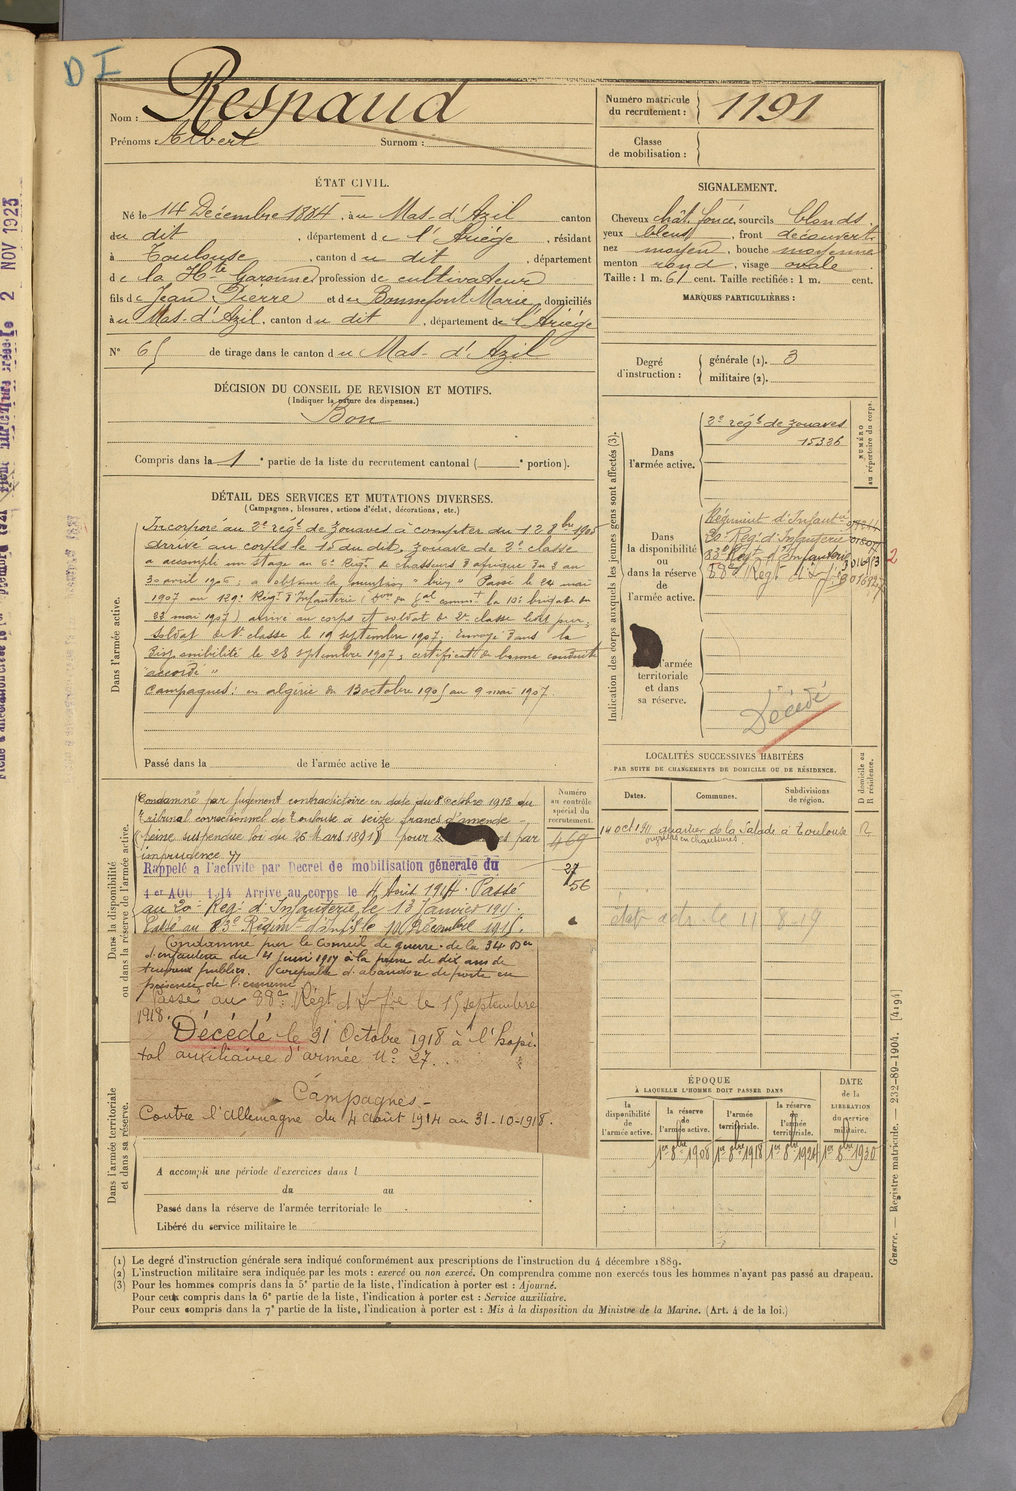 D I
Nom : Respaud
Prénoms : Albert Surnom :
Numéro matricule
du recrutement : 1191
Classe
de mobilisation :
ÉTAT CIVIL.
Né le 14 Décembre 1884, à u Mas-d'Azil canton
du dit, département de l'Ariège, résidant
à Toulouse, canton du dit, département
de la Hte Garonne, profession de cultivateur
fils de Jean Pierre et de Bonnefont Marie, domiciliés
à u Mas-d'Azil, canton du dit, département de l'Ariège
N° 65 de tirage dans le canton du Mas-d'Azil
SIGNALEMENT.
Cheveux chât. foncé, sourcils blonds
yeux bleus, front découvert
nez moyen, bouche moyenne
menton rond, visage ovale
Taille : 1 m. 61 cent. Taille rectifiée : 1 m. cent.
MARQUES PARTICULIÈRES :
Degré
d'instruction :
générale (1). 3
militaire (2).
DÉCISION DU CONSEIL DE REVISION ET MOTIFS.
(Indiquer la nature des dispenses.)
Bon
Compris dans la 1e partie de la liste du recrutement cantonal ( e portion).
DÉTAIL DES SERVICES ET MUTATIONS DIVERSES.
(Campagnes, blessures, actions d'éclat, décorations, etc.)
Dans l'armée active.
Incorporé au 2e régt de zouaves à compter du 12 8bre 1905
arrivé au corps le 15 du dit, zouave de 2e classe
a accompli un stage au 6e Régt de chasseurs d'afrique du 3 au
30 avril 1906; a obtenu la mention "bien" Passé le 24 mai
1907 au 129e Régt d'Infanterie
23 mai 1907) arrivé au corps et soldat de 2e classe ledit jour;
soldat de 1e classe le 19 septembre 1907; Envoyé dans la
disponibilité le 28 septembre 1907; certificat de bonne conduite
"accordé"
Campagnes: en algérie du 13 octobre 1905 au 9 mai 1907
Passé dans la de l'armée active le
Indication des corps auxquels les jeunes gens sont affectés (3).
NUMÉRO
au répertoire du corps.
Dans
l'armée active.
2e régt de zouaves
15336
Dans
la disponibilité
ou
dans la réserve
de
l'armée active.
Régiment d'Infantie
20e Reg. d'Infanterie
83e Régt d'Infanterie
88e Régt d'Infie
2
l'armée
territoriale
et dans
sa réserve.
Décédé
Dans la disponibilité
ou dans la réserve de l'armée active.
Numéro
au contrôle
spécial du
recrutement.
469
27
56
Condamné par jugement contradictoire en date du 8 octobre 1913 du
tribunal correctionnel de Toulouse à seize francs d'amende -
peine suspendue loi du 26 Mars 1891 pour par
imprudence
Rappelé à l'activité par Décret de mobilisation générale du
1er AOU 1914 Arrivé au corps le 4 Août 1914. Passé
au 20e Reg. d'Infanterie, le 13 Janvier 191
Passé au 83e Régiment d'Infie le 10 Décembre 1915.
Condamné par le Conseil de guerre de la 34 Don
d'infanterie du 4 juin 1917 à la peine de dix ans de
travaux publics. Coupable d'abandon de poste en
présence de l'ennemi
Passé au 88e Régt d'Infie le 15 septembre
1918.
Décédé le 31 Octobre 1918 à l'hopi-
tal auxiliaire d'armée N° 27.
Campagnes -
Contre l'Allemagne du 4 août 1914 au 31-10-1918.
LOCALITÉS SUCCESSIVES HABITÉES
PAR SUITE DE CHANGEMENTS DE DOMICILE OU DE RÉSIDENCE.
Dates. Communes. Subdivisions
de région.
D domicile ou
R résidence.
14 oct 1911 quartier de la Salade à Toulouse R
ouvrier en chaussures
11 8-19
Dans l'armée territoriale
et dans sa réserve.
A accompli une période d'exercices dans l
du au
Passé dans la réserve de l'armée territoriale le
Libéré du service militaire le
ÉPOQUE
À LAQUELLE L'HOMME DOIT PASSER DANS
la
disponibilité
de
l'armée active.
la réserve
de
l'armée active.
l'armée
territoriale.
la réserve
de
l'armée
territoriale.
DATE
de la
LIBÉRATION
du service
militaire.
1er 8bre 1908 1er 8bre 1918 1er 8bre 1924 1er 8bre 1930
(1) Le degré d'instruction générale sera indiqué conformément aux prescriptions de l'instruction du 4 décembre 1889.
(2) L'instruction militaire sera indiquée par les mots : exercé ou non exercé. On comprendra comme non exercés tous les hommes n'ayant pas passé au drapeau.
(3) Pour les hommes compris dans la 5e partie de la liste, l'indication à porter est : Ajourné.
Pour ceux compris dans la 6e partie de la liste, l'indication à porter est : Service auxiliaire.
Pour ceux compris dans la 7e partie de la liste, l'indication à porter est : Mis à la disposition du Ministre de la Marine. (Art. 4 de la loi.)
Guerre. — Registre matricule. — 232-89-1904. [4194]
2 NOV 1923